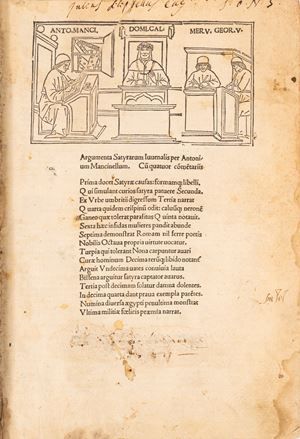 ANTO.MANCI. DOMI.CAL. MERV. GEOR.V.
Argumenta Satyrarum Iuuenalis per Antoni-
um Mancinellum. Cū quatuor cōmētariis
Prima docet Satyræ causas: formamq; libelli
Q ui simulant curios satyra patuere Secunda.
Ex Vrbe umbritii digressum Tertia narrat
Q uarta quidem crispinū odit: caluūq; neronē
Ganeo quæ tolerat parasitus Q uinta notauit.
Sexta hæc infidas mulieres pandit abunde
Septima demonstrat Romam nil ferre poetis
Nobilis Octaua propria uirtute uocatur.
Turpia qui tolerant Nona carpuntur auari
Curæ hominum Decima rerūq; libido notatᷣ
Arguit Vndecima uates conuiuia lauta
Bissena arguitur satyra captator auarus.
Tertia post decimum solatur damna dolentes.
In decima quarta dant praua exempla parētes.
Numina diuersa ægypti penultima monstrat
Vltima militiæ fœlicis præmia narrat.